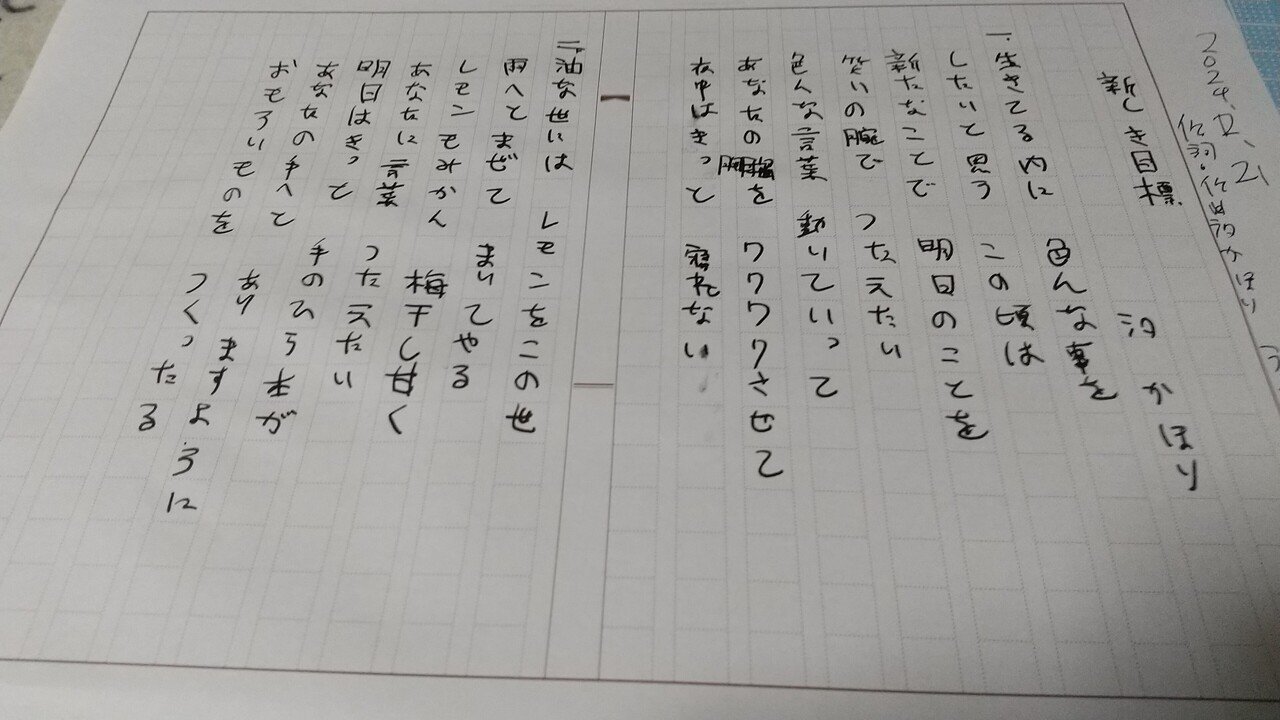 2024.12.21
作詞・作曲 汐 かほり
新しき目標
汐 かほり
一.生きてる内に 色んな事を
したいと思う この頃は
新たなことで 明日のことを
笑いの腕で つたえたい
色んな言葉 動いていって
あなたの胸を ワクワクさせて
夜中はきっと 寝れない
二.油な世には レモンをこの世
雨へとまぜて まいてやる
レモンもみかん 梅干し甘く
あなたに言葉 つたえたい
明日はきっと 手のひら本が
あなたの手へと ありますように
おもろいものを つくったる